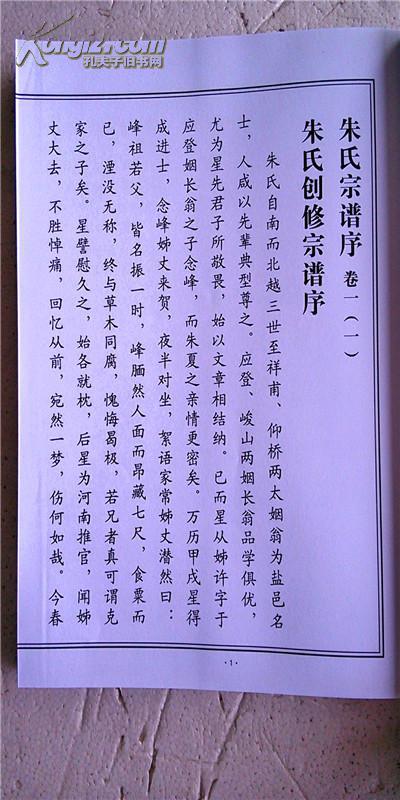 Kongfz.com
孔夫子旧书网
朱氏宗谱序 卷一（一）
朱氏创修宗谱序
朱氏自南而北越三世至祥甫、仰桥两太姻翁为盐邑名
士，人咸以先辈典型尊之。应登、峻山两姻长翁品学俱优，
尤为星先君子所敬畏，始以文章相结纳。已而星从姊许字于
应登姻长翁之子念峰，而朱夏之亲情更密矣。万历甲戌星得
成进士，念峰姊丈来贺，夜半对坐，絮语家常姊丈潜然曰：
峰祖若父，皆名振一时，峰腼然人面而昂藏七尺，食粟而
已，湮没无称，终与草木同腐，愧悔曷极，若兄者真可谓克
家之子矣。星譬慰久之，始各就枕，后星为河南推官，闻姊
丈大去，不胜悼痛，回忆从前，宛然一梦，伤何如哉。今春
·1·